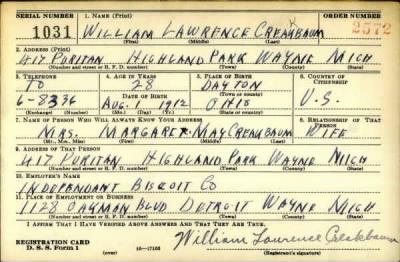 SERIAL NUMBER 1. NAME (Print) ORDER NUMBER
1031 WILLIAM LAWRENCE CREAKBAUM 2572
(First) (Middle) (Last)
2. ADDRESS (Print)
417 PURITAN HIGHLAND PARK WAYNE MICH
(Number and street or R. F. D. number) (Town) (County) (State)
3. TELEPHONE 4. AGE IN YEARS 5. PLACE OF BIRTH 6. COUNTRY OF CITIZENSHIP
TO 28 DAYTON
DATE OF BIRTH (Town or county)
6-8336 AUG. 1 1912 OHIO U.S.
(Mo.) (Day) (Yr.) (State or country)
7. NAME OF PERSON WHO WILL ALWAYS KNOW YOUR ADDRESS 8. RELATIONSHIP OF THAT PERSON
MRS. MARGARET MAY CREAKBAUM WIFE
(Mr., Mrs., Miss) (First) (Middle) (Last)
9. ADDRESS OF THAT PERSON
417 PURITAN HIGHLAND PARK WAYNE MICH
(Number and street or R. F. D. number) (Town) (County) (State)
10. EMPLOYER'S NAME
INDEPENDANT BISCUIT CO
11. PLACE OF EMPLOYMENT OR BUSINESS
1128 OAKMAN BLVD DETROIT WAYNE MICH
(Number and street or R. F. D. number) (Town) (County) (State)
I AFFIRM THAT I HAVE VERIFIED ABOVE ANSWERS AND THAT THEY ARE TRUE.
REGISTRATION CARD
D. S. S. Form 1 William Lawrence Creakbaum
(Registrant's signature)